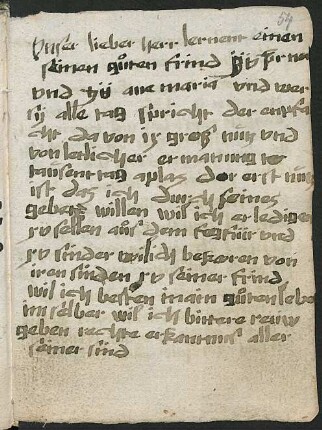 54
Unser lieber herr lernent einen
seinen güten frind
und iij ave maria und wer
sy alle tag spricht der enpfa
cht da von ix groß nutz und
von ietlicher ermanung
tausent tag aplas der erst nutz
ist das ich durch seines
gebetz willen wil ich erledigen
xv sellen aus dem fegfür und
xv sinder wil ich bekeren von
iren sinden xv seiner frind
wil ich besten in aim güten lebe
im selber wil ich bittere reuw
geben rechte erkantnus aller
seiner sünd